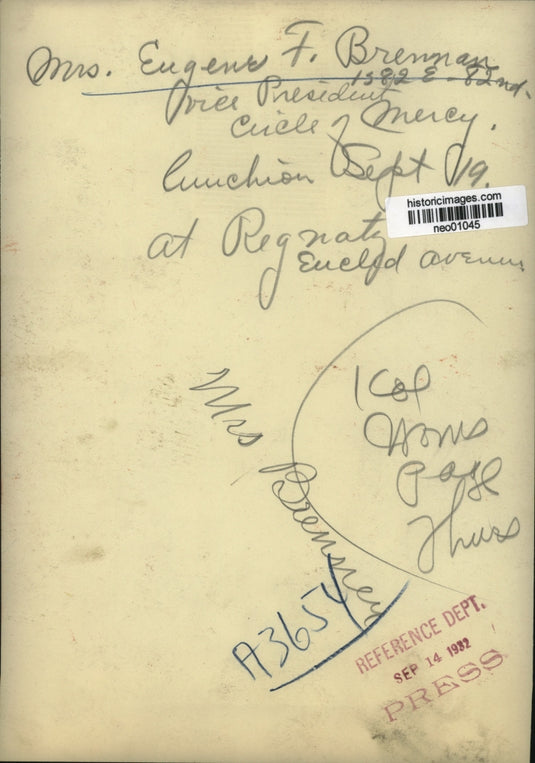 Mrs. Eugene F. Brennan
1382 E - 82nd.
Vice President
Circle of Mercy.
luncheon Sept 19.
at Regnatz
Euclid avenue
historicimages.com
neo01045
1 Col
Woms
Page
Thurs
Mrs Brennan
A3654
REFERENCE DEPT.
SEP 14 1932
PRESS